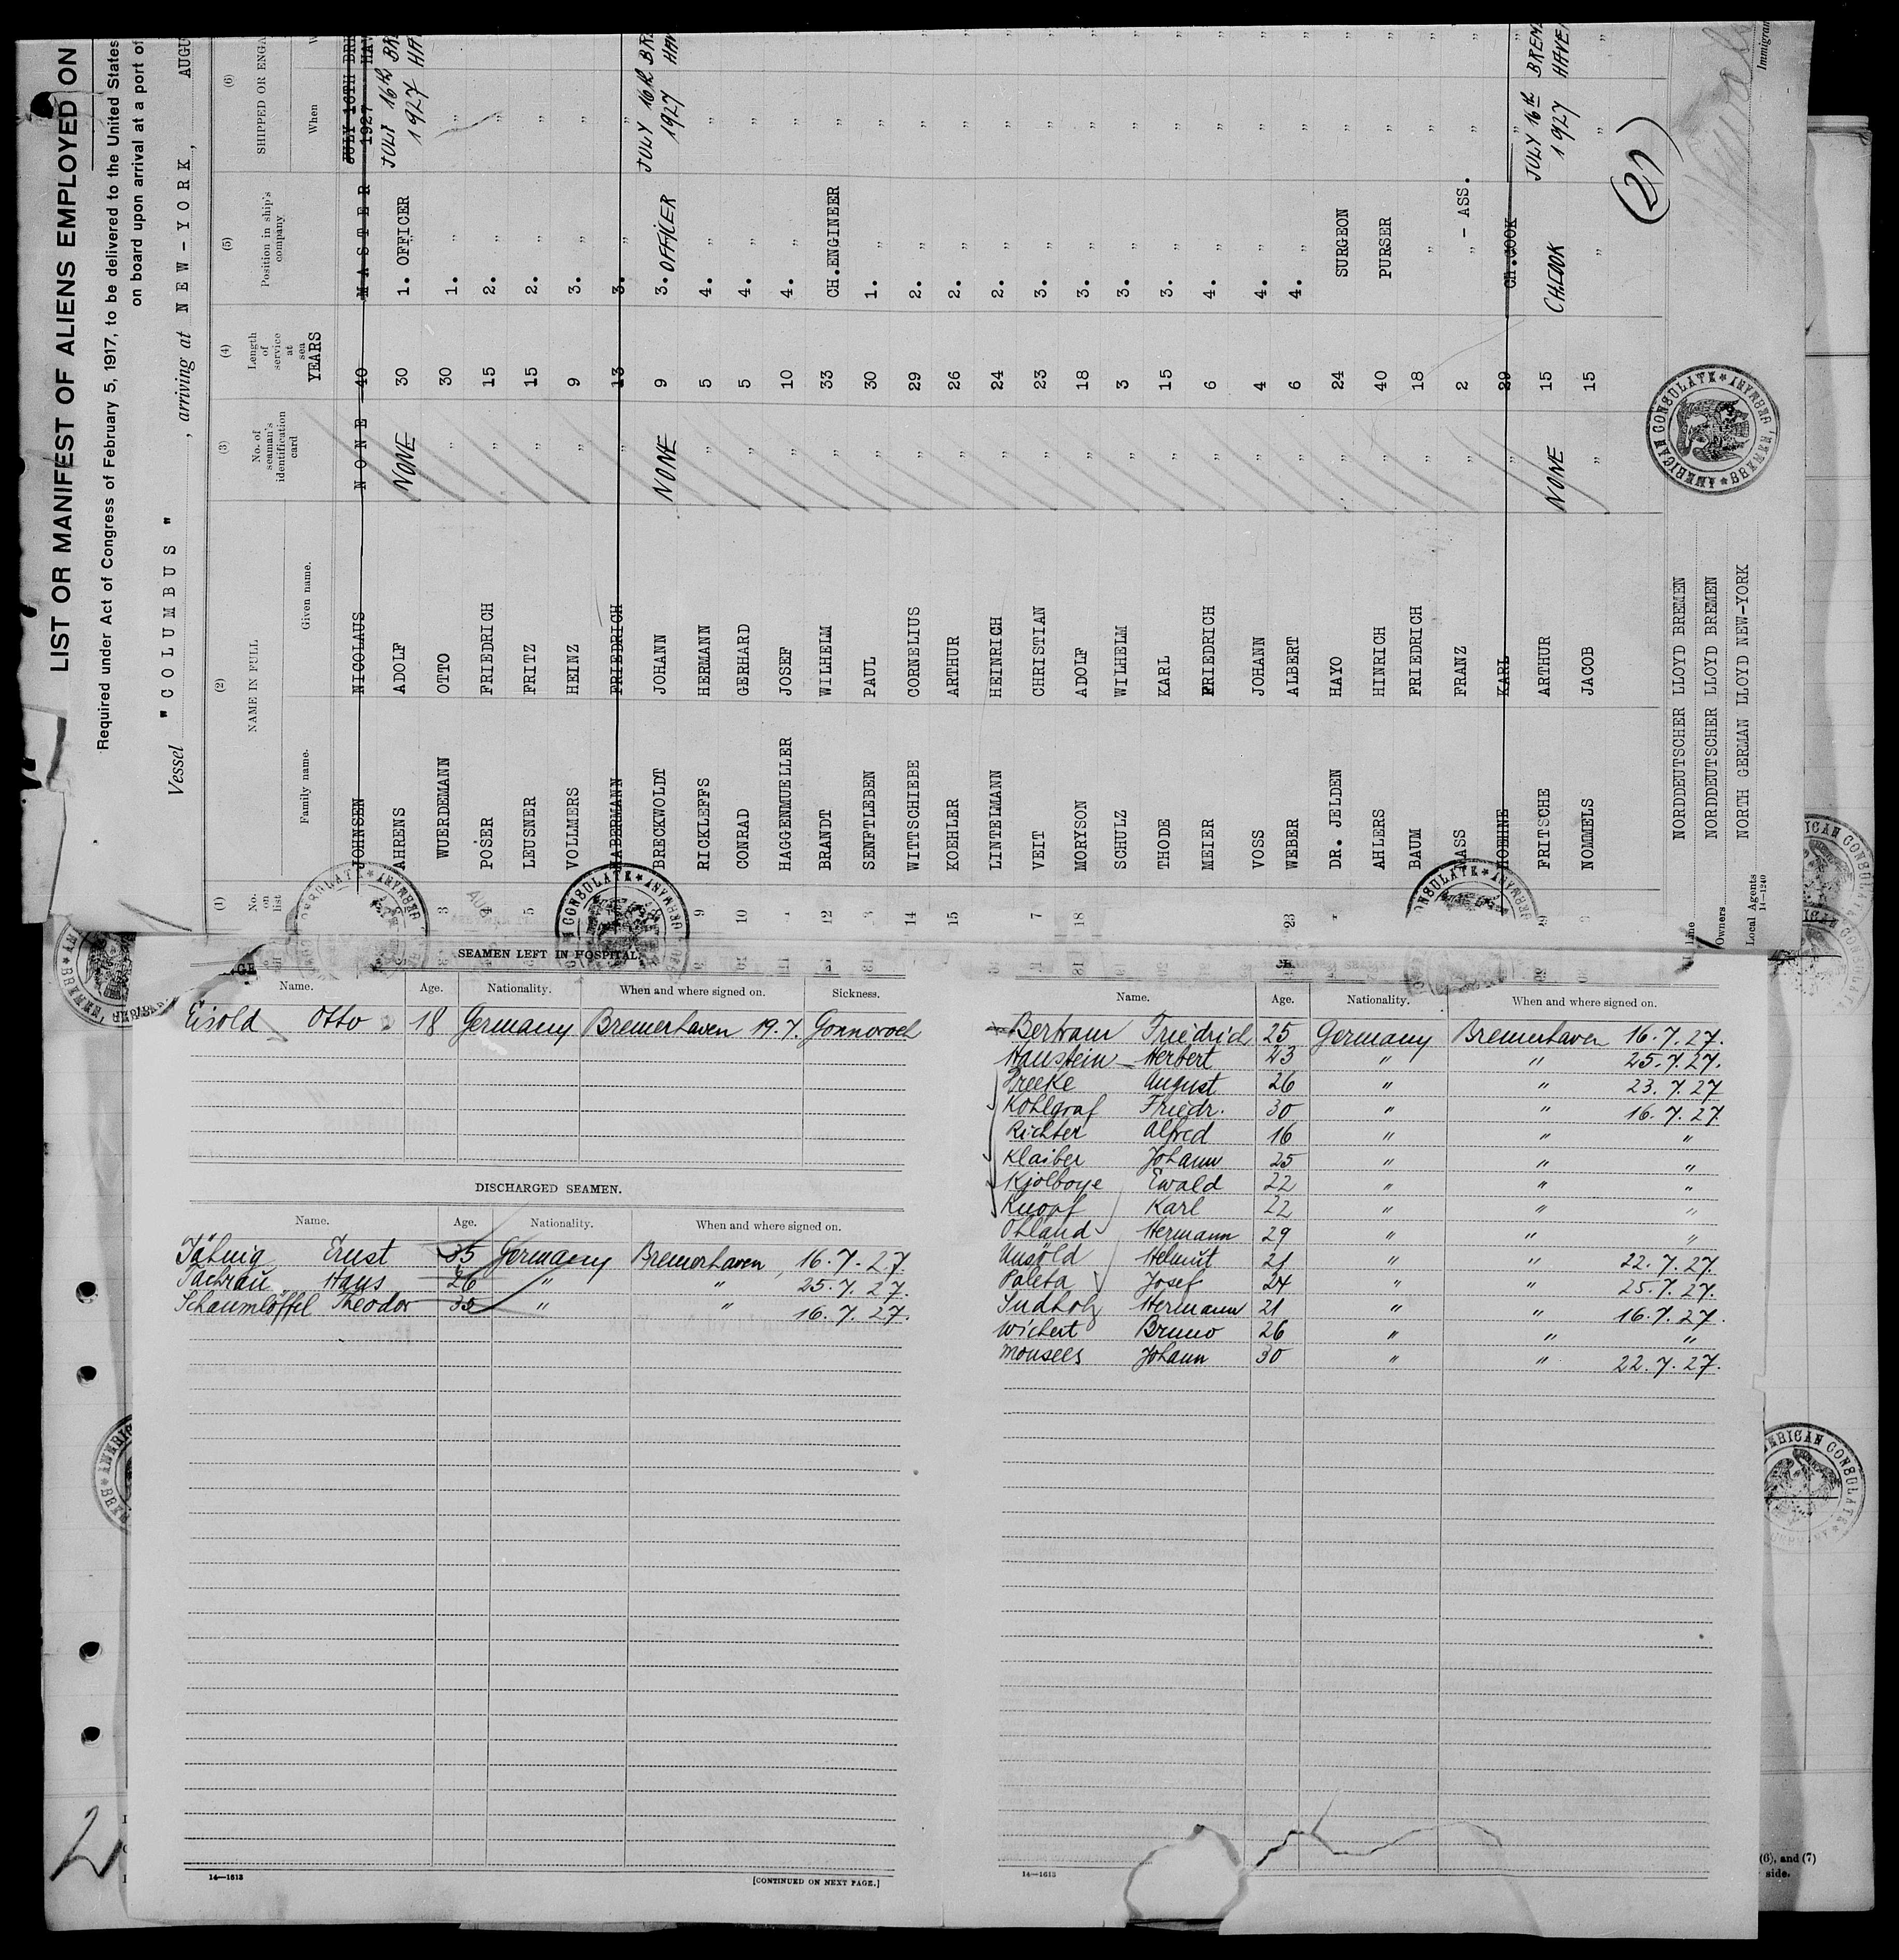 LIST OR MANIFEST OF ALIENS EMPLOYED ON
Required under Act of Congress of February 5, 1917, to be delivered to the United States
on board upon arrival at a port of
Vessel "COLUMBUS", arriving at NEW-YORK, AUGU
(1) (2) (3) (4) (5) (6)
No. on list NAME IN FULL No. of seaman's identification card Length of service at sea Position in ship's company SHIPPED OR ENGA
Family name. Given name. YEARS When W
JOHNSEN NICOLAUS NONE 40 MASTER JULY 16TH BRE
1927 HAV
AHRENS ADOLF NONE 30 1. OFFICER JULY 16th BRE
1927 HAV
3 WUERDEMANN OTTO " 30 1. " "
4 POSER FRIEDRICH " 15 2. " "
5 LEUSNER FRITZ " 15 2. " "
VOLLMERS HEINZ " 9 3. " "
HABERMANN FRIEDRICH " 13 3. "
BRECKWOLDT JOHANN NONE 9 3. OFFICER JULY 16th BRE
1927 HAV
9 RICKLEFFS HERMANN " 5 4. " " "
10 CONRAD GERHARD " 5 4. " " "
HAGGENMUELLER JOSEF " 10 4. " " "
12 BRANDT WILHELM " 33 CH.ENGINEER " "
SENFTLEBEN PAUL " 30 1. " " "
14 WITTSCHIEBE CORNELIUS " 29 2. " " "
15 KOEHLER ARTHUR " 26 2. " " "
LINTELMANN HEINRICH " 24 2. " " "
7 VEIT CHRISTIAN " 23 3. " " "
18 MORYSON ADOLF " 18 3. " " "
SCHULZ WILHELM " 3 3. " " "
THODE KARL " 15 3. " " "
MEIER FRIEDRICH " 6 4. " " "
VOSS JOHANN " 4 4. " " "
23 WEBER ALBERT " 6 4. " " "
DR. JELDEN HAYO " 24 SURGEON " "
AHLERS HINRICH " 40 PURSER " "
BAUM FRIEDRICH " 18 " " "
FRANZ " 2 " - ASS. " "
KARL " 29 CH.COOK "
FRITSCHE ARTHUR NONE 15 CH.COOK JULY 16th BREM
1927 HAVE
NOMMELS JACOB " 15 " " "
(21)
Line NORDDEUTSCHER LLOYD BREMEN
Owners NORDDEUTSCHER LLOYD BREMEN
Local Agents NORTH GERMAN LLOYD NEW-YORK
14-1240
Immigran
AMERICAN CONSULATE * BREMEN, GERMANY *
SEAMEN LEFT IN HOSPITAL.
Name. Age. Nationality. When and where signed on. Sickness.
Eisold Otto 18 Germany Bremerhaven 19.7.
DISCHARGED SEAMEN.
Name. Age. Nationality. When and where signed on.
Jähnig Ernst 35 Germany Bremerhaven, 16.7.27.
Hans 26 " " 25.7.27.
Schaumlöffel Theodor 35 " " 16.7.27.
14—1613
[CONTINUED ON NEXT PAGE.]
Name. Age. Nationality. When and where signed on.
Bertram Friedrich 25 Germany Bremerhaven 16.7.27.
Haustein Herbert 23 " " 25.7.27.
August 26 " " 23.7.27
Kohlgraf Friedr. 30 " " 16.7.27
Richter Alfred 16 " " "
Klaiber Johann 25 " " "
Kjolboye Ewald 22 " " "
Knopf Karl 22 " " "
Ohland Hermann 29 " " "
Unsöld Helmut 21 " " 22.7.27.
Paleta Josef 24 " " 25.7.27.
Sudholz Hermann 21 " " 16.7.27.
Wichert Bruno 26 " " "
Monsees Johann 30 " " 22.7.27.
14—1613
(6), and (7)
side.